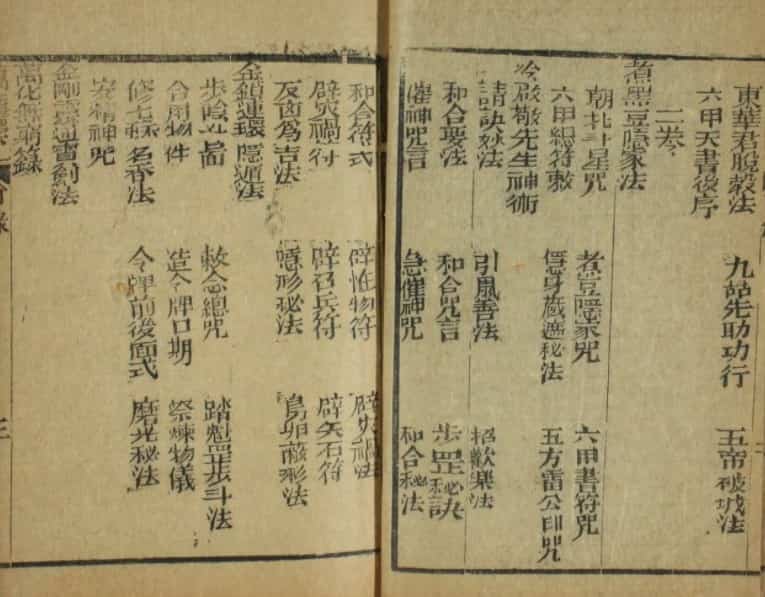 東華君脫殼法 九姑先助功行 五帝破城法
六甲天書後序
二卷
煮黑豆隱家法
朝北斗星咒 煮豆隱家咒 六甲書符咒
六甲總符敕 隱身藏遁秘法 五方雷公印咒
冷啟敬先生神術
請訣妙法 引風善法 招歡樂法
和合聚法 和合咒言 步罡秘訣
催神咒言 急催神咒 和合秘法
和合符式 辟怪物符
辟災禍符 辟刀兵符 辟矢石符
反凶為吉法 隱形秘法 鳥卵蔽形法
金鎖連環隱遁法
步陰斗圖 敕念總咒 踏魁罡步斗法
合用物件 造令牌日期 祭煉物儀
名香法 令牌前後面式 磨光秘法
安精神咒
金剛靈通雷劍法
萬化無窮錄